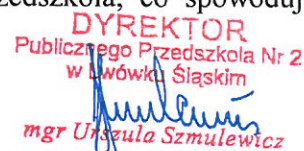 zedszkola, co spowoduj
DYREKTOR
Publicznego Przedszkola Nr 2
w Lwówku Śląskim
mgr Urszula Szmulewicz